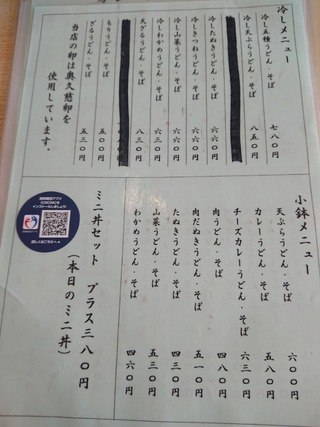 冷しメニュー
冷し五種うどん・そば 七八〇円
冷し天ぷらうどん・そば 八五〇円
冷したぬきうどん・そば 六六〇円
冷しきつねうどん・そば 六六〇円
冷し山菜うどん・そば 六六〇円
冷しわかめうどん・そば 六六〇円
天ざるうどん・そば 八三〇円
もりうどん・そば 五〇〇円
ざるうどん・そば 五三〇円
当店の卵は奥久慈卵を
使用しています。
小鉢メニュー
天ぷらうどん・そば 六〇〇円
カレーうどん・そば 五八〇円
チーズカレーうどん・そば 六三〇円
肉うどん・そば 四八〇円
肉だぬきうどん・そば 五一〇円
たぬきうどん・そば 四三〇円
山菜うどん・そば 五三〇円
わかめうどん・そば 四六〇円
ミニ丼セット プラス三八〇円
(本日のミニ丼)